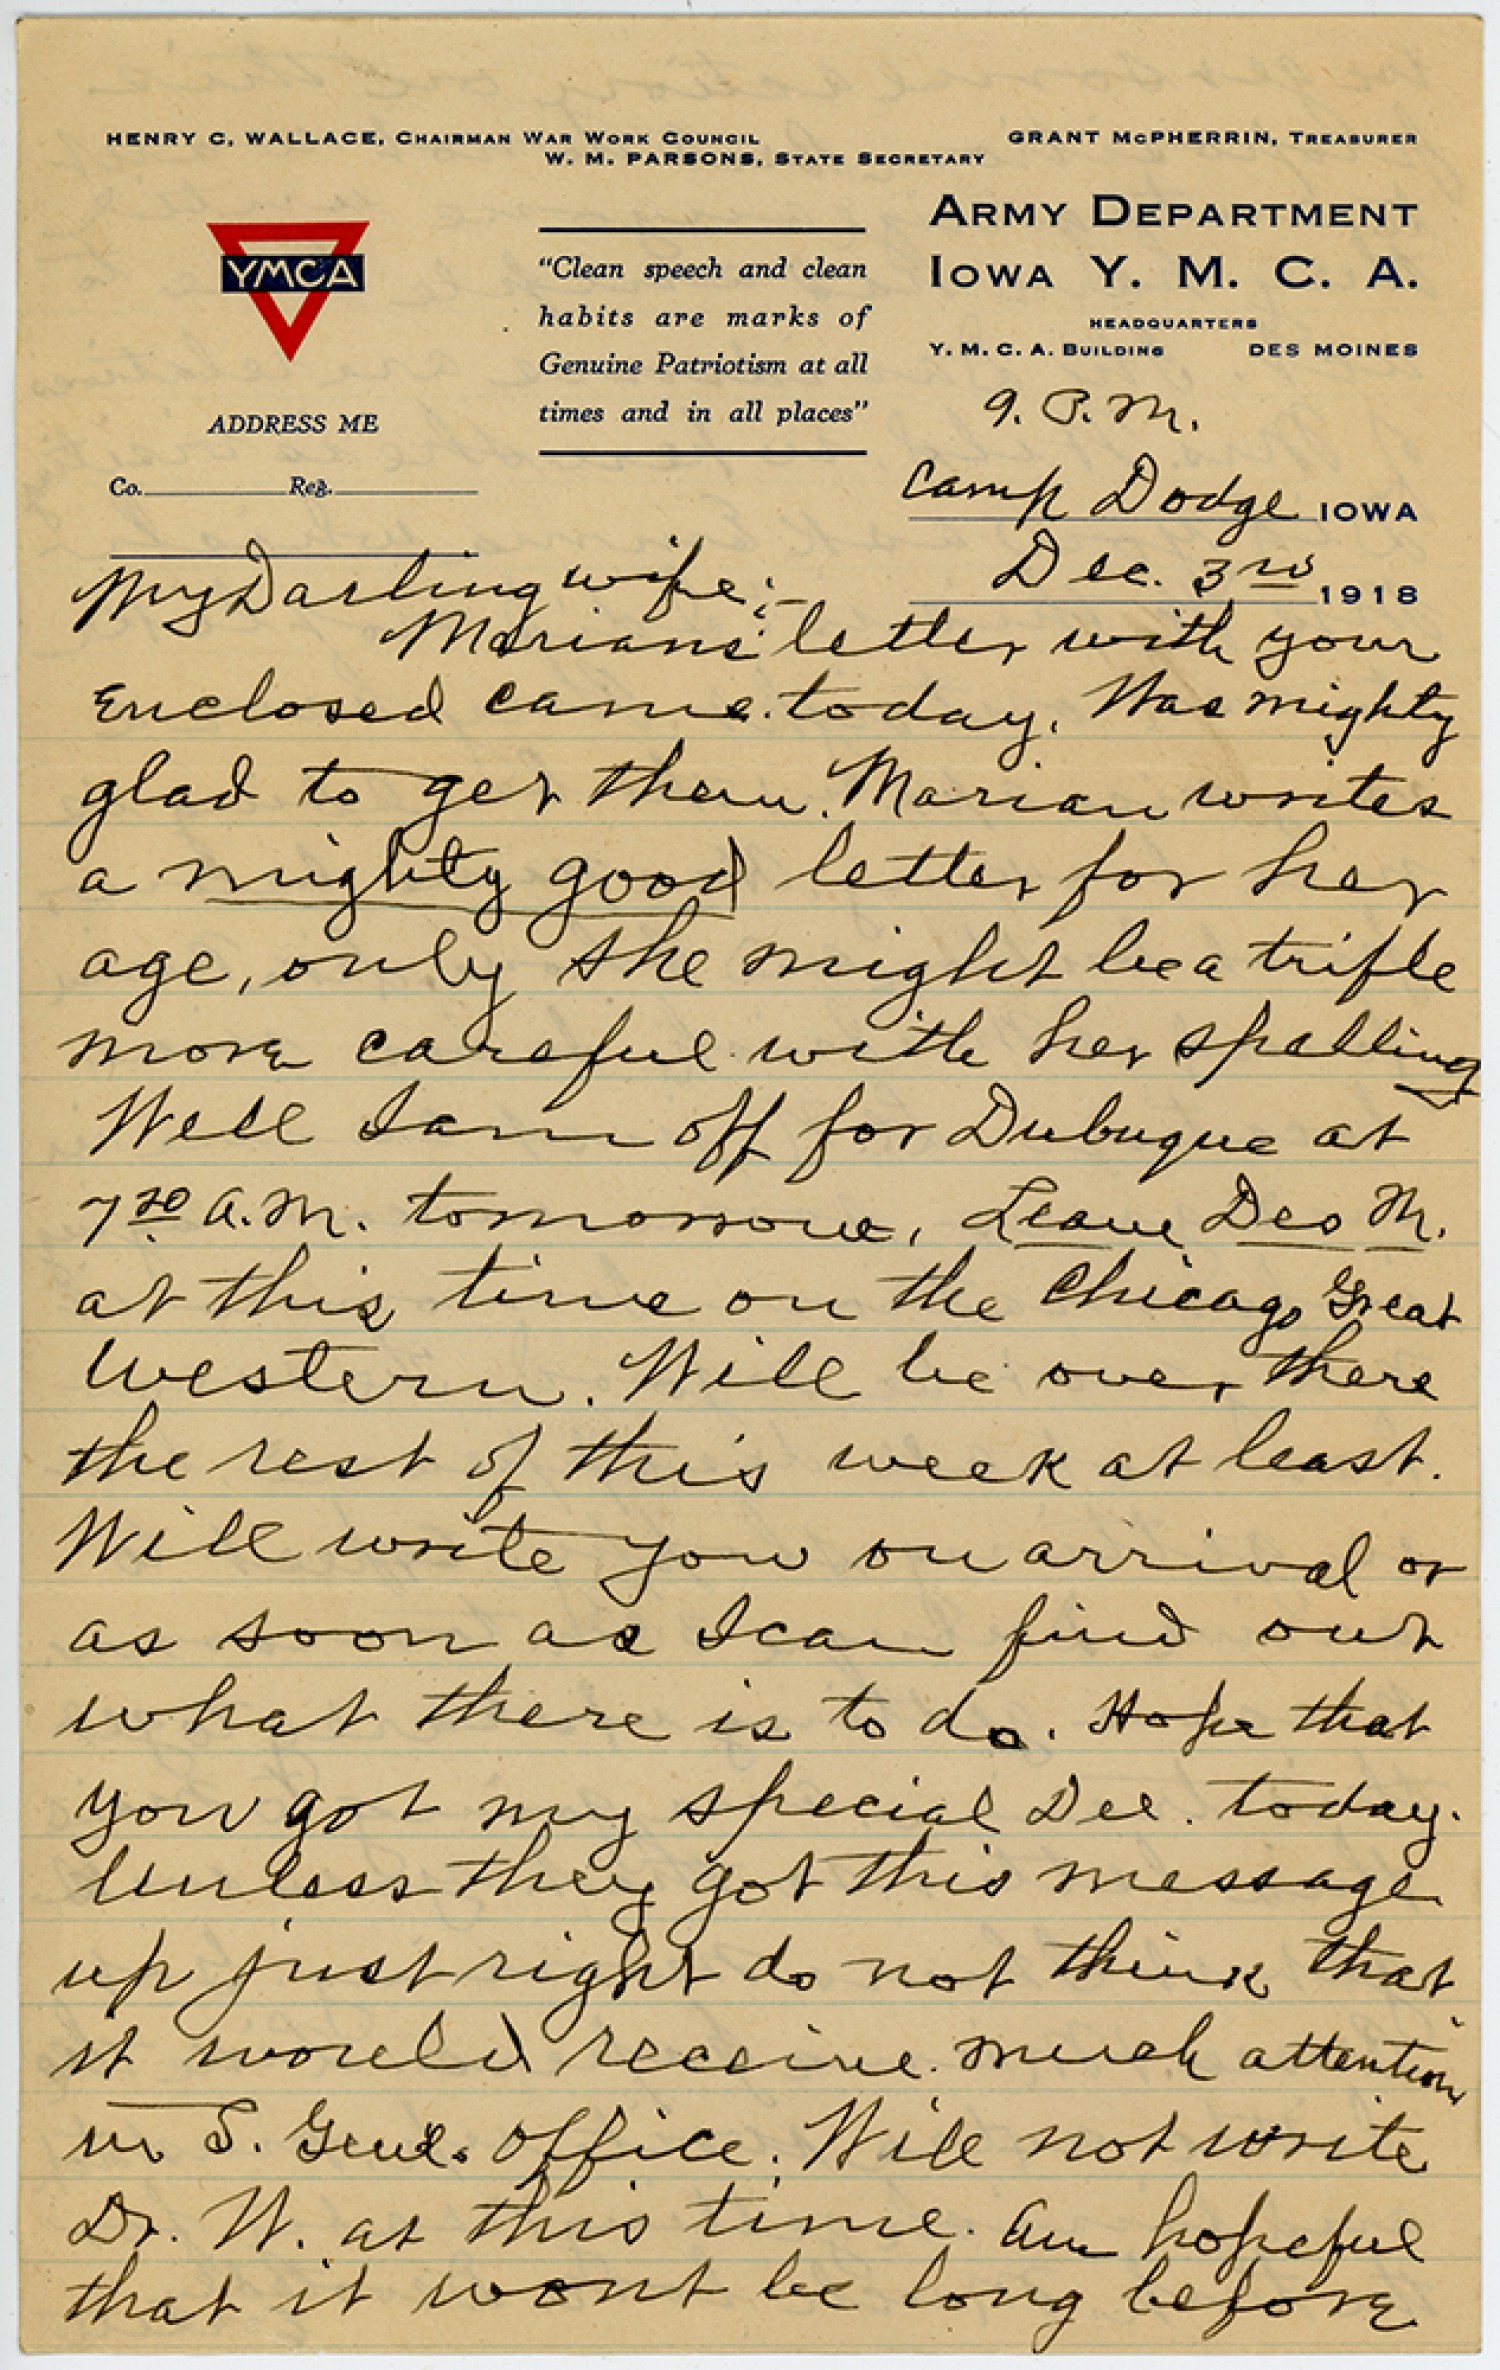 HENRY C. WALLACE, CHAIRMAN WAR WORK COUNCIL GRANT McPHERRIN, TREASURER
W. M. PARSONS, STATE SECRETARY
YMCA
ADDRESS ME
Co. Reg.
"Clean speech and clean
habits are marks of
Genuine Patriotism at all
times and in all places"
ARMY DEPARTMENT
IOWA Y. M. C. A.
HEADQUARTERS
Y. M. C. A. BUILDING DES MOINES
9. P.M.
Camp Dodge IOWA
Dec. 3rd 1918
My Darling wife;-
Marians letter with your
Enclosed came today. Was mighty
glad to get them. Marian writes
a mighty good letter for her
age, only she might be a trifle
more careful with her spelling
Well I am off for Dubuque at
7 30 A.M. tomorrow. Leave Des M.
at this time on the Chicago Great
Western. Will be over there
the rest of this week at least.
Will write you on arrival or
as soon as I can find out
what there is to do. Hope that
you got my special Del. today.
Unless they got this message
up just right do not think that
it would receive much attention
in S. Genl. office. Will not write
Dr. W. at this time. Am hopeful
that it wont be long before